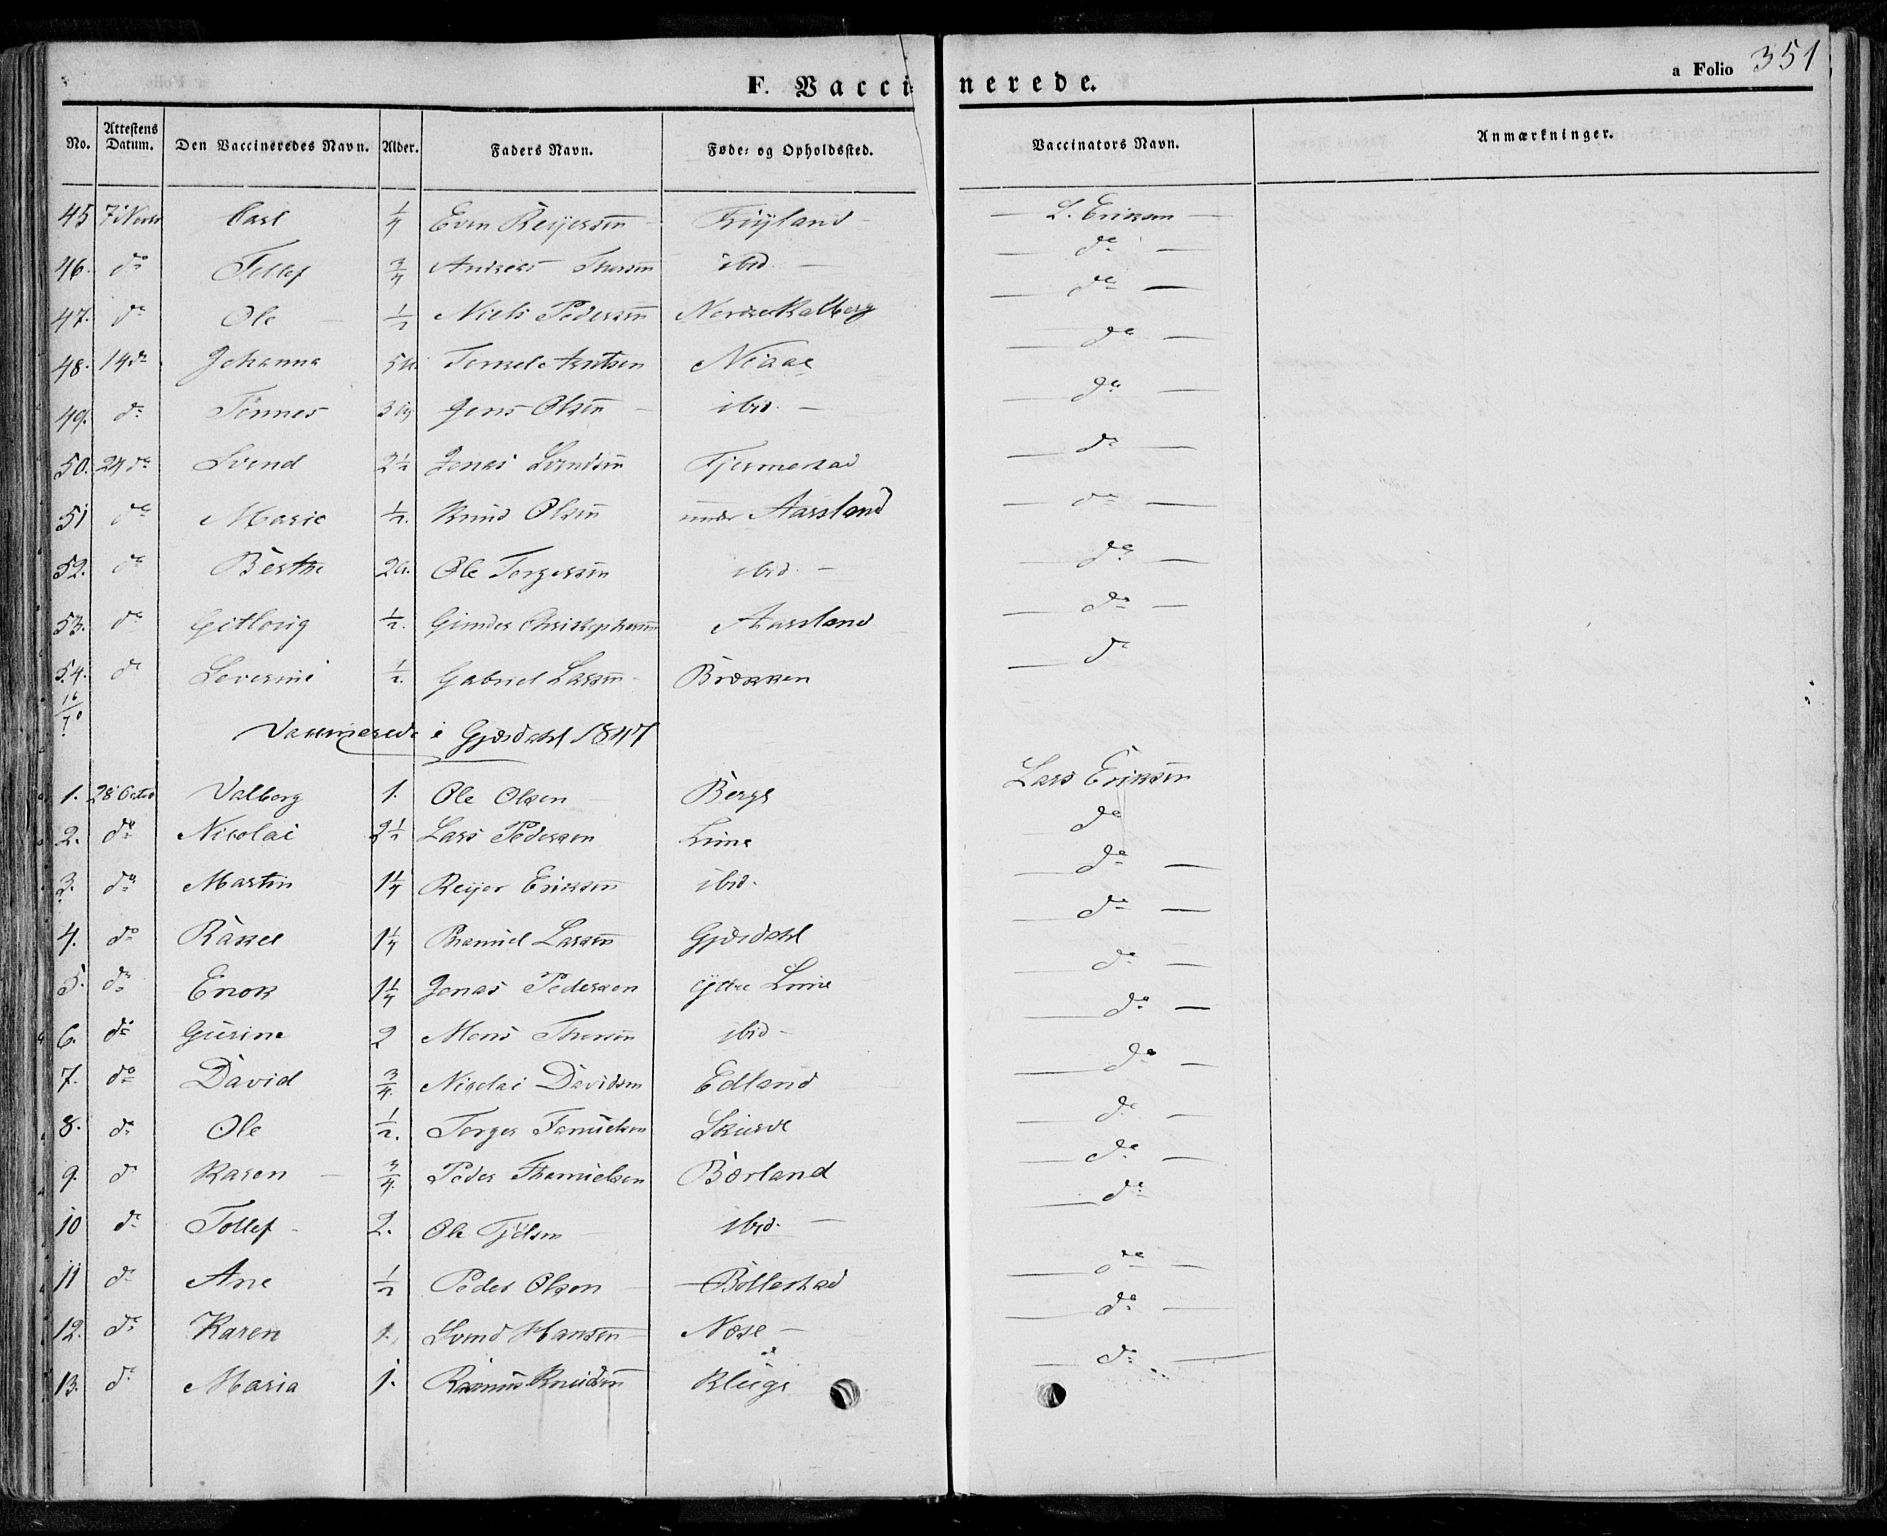 a Folio 351
F. Vaccinerede.
No. Attestens Datum. Den Vaccineredes Navn. Alder. Faders Navn. Føde- og Opholdssted. Vaccinators Navn. Anmærkninger.
45 7 Novbr Carl 1/4 Even Reijersen Frøyland L. Eriksen
46. do Tollef 3/4 Andreas Thorsen ibid. do
47. do Ole 1/2 Niels Pedersen Nordre Kalberg do
48. 14 do Johanna 5 Torkel Arntsen Niaae do
49. do Tønnes 3 Jens Olsen ibid. do
50. 24 do Svend 2 1/2 Jonas Svendsen Tjermestad do
51 do Marie 1/2. Knud Olsen under Aarsland do
52. do Berthe 2 a. Ole Torgersen ibid. do
53. do Gitlorig 1/2. Gunder Christophersen Aarsland do
54. do Severine 1/2. Gabriel Larsen Brækken do
16/70
Vaccinerede i Gjesdahl 1847
1. 28 Octob Valborg 1. Ole Olsen Berge Lars Eriksen
2. do Nicolai 2 1/2 Lars Pedersen Lime do
3. do Martin 1 1/4 Reijer Ericksen ibid. do
4. do Rakkel 1 1/4 Thamuel Larsen Gjesdahl do
5. do Enok 1 1/4 Jonas Pedersen Ydre Lime do
6. do Gurine 2 Mons Thorsen ibid do
7. do David 3/4. Nicolai Davidsen Edland do
8. do Ole 1/2. Torger Tamuelsen Skurve do
9. do Karen 3/4. Peder Thamuelsen Bærland do
10 do Tollef 2. Ole Tjølsen ibid. do
11 do Ane 1/2 Peder Olsen Bollestad do
12. do Karen 1. Svend Hansen Næse do
13. do Maria 1. Rasmus Knudsen Kluge do